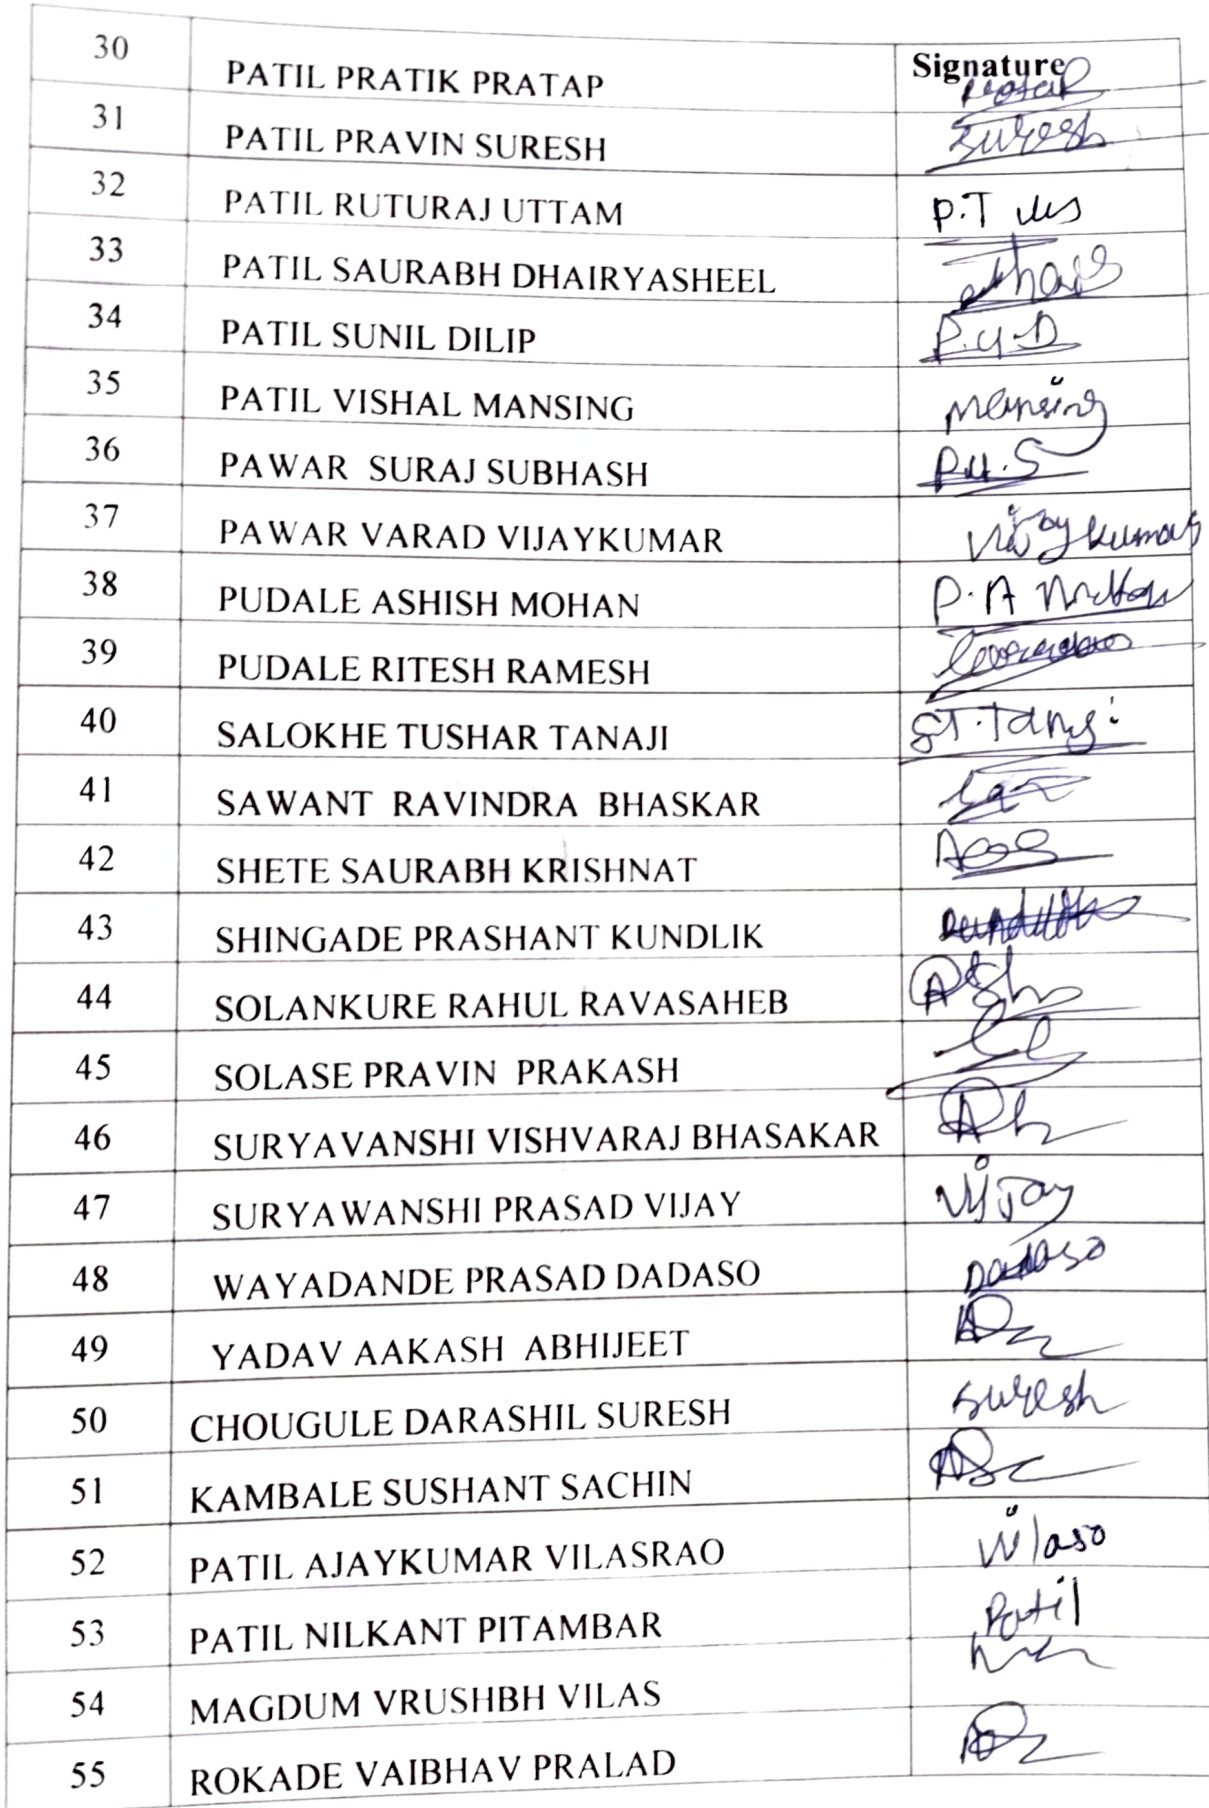 30 PATIL PRATIK PRATAP Signature
31 PATIL PRAVIN SURESH Suresh
32 PATIL RUTURAJ UTTAM P.T
33 PATIL SAURABH DHAIRYASHEEL
34 PATIL SUNIL DILIP P.U.D
35 PATIL VISHAL MANSING Mansing
36 PAWAR SURAJ SUBHASH P.U.S
37 PAWAR VARAD VIJAYKUMAR Vijaykumar
38 PUDALE ASHISH MOHAN P.A
39 PUDALE RITESH RAMESH
40 SALOKHE TUSHAR TANAJI
41 SAWANT RAVINDRA BHASKAR
42 SHETE SAURABH KRISHNAT
43 SHINGADE PRASHANT KUNDLIK
44 SOLANKURE RAHUL RAVASAHEB
45 SOLASE PRAVIN PRAKASH
46 SURYAVANSHI VISHVARAJ BHASAKAR
47 SURYAWANSHI PRASAD VIJAY Vijay
48 WAYADANDE PRASAD DADASO Dadaso
49 YADAV AAKASH ABHIJEET
50 CHOUGULE DARASHIL SURESH Suresh
51 KAMBALE SUSHANT SACHIN
52 PATIL AJAYKUMAR VILASRAO Vilaso
53 PATIL NILKANT PITAMBAR Patil
54 MAGDUM VRUSHBH VILAS
55 ROKADE VAIBHAV PRALAD